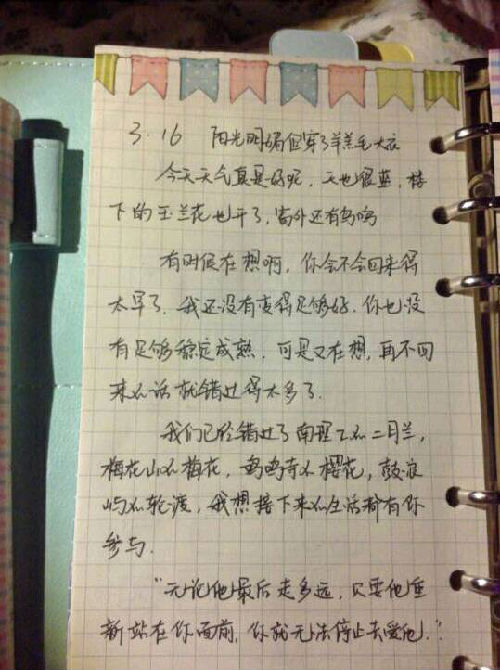 3.16 阳光明媚但穿了羊羔毛大衣
今天天气真是好呢，天也很蓝，楼
下的玉兰花也开了，窗外还有鸟鸣
有时候在想啊，你会不会回来得
太早了，我还没有变得足够好，你也没
有足够稳定成熟，可是又在想，再不回
来的话就错过得太多了.
我们已经错过了南理工的二月兰，
梅花山的梅花，鸡鸣寺的樱花，鼓浪
屿的轮渡，我想接下来的生活都有你
参与.
“无论他最后走多远，只要他重
新站在你面前，你就无法停止去爱他.”